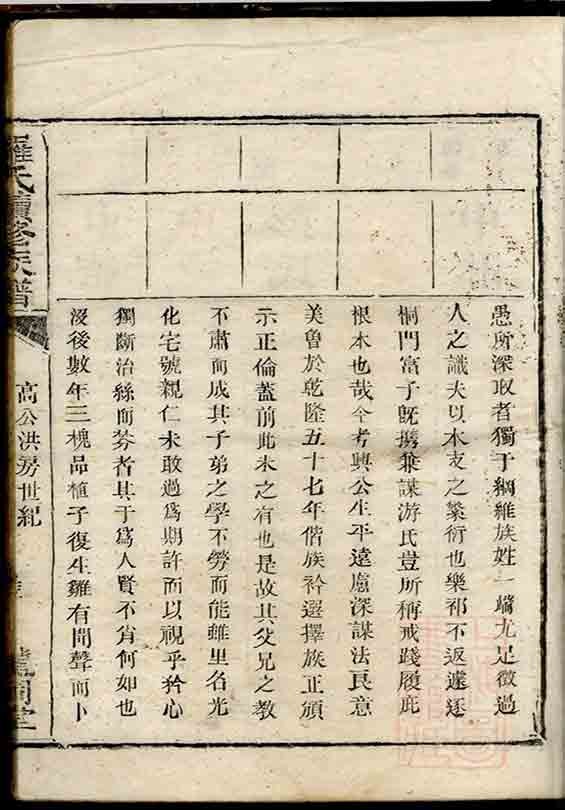 愚所深取者獨于綱維族姓一端尤足徵過
人之識夫以本支之蕃衍也樂祁不返遽逐
桐門富子旣殤兼謀游氏豈所稱戒踐履庇
根本也哉今考興公生平遠慮深謀法良意
美魯於乾隆五十七年偕族衿選擇族正頒
示正倫蓋前此未之有也是故其父兄之教
不肅而成其子弟之學不勞而能雖里名光
化宅號親仁未敢過爲期許而以視乎矜心
獨斷治絲而棼者其于爲人賢不肖何如也
沒後數年三槐品植子復生雖有聞聲而卜
羅氏續修族譜
高公洪房世紀